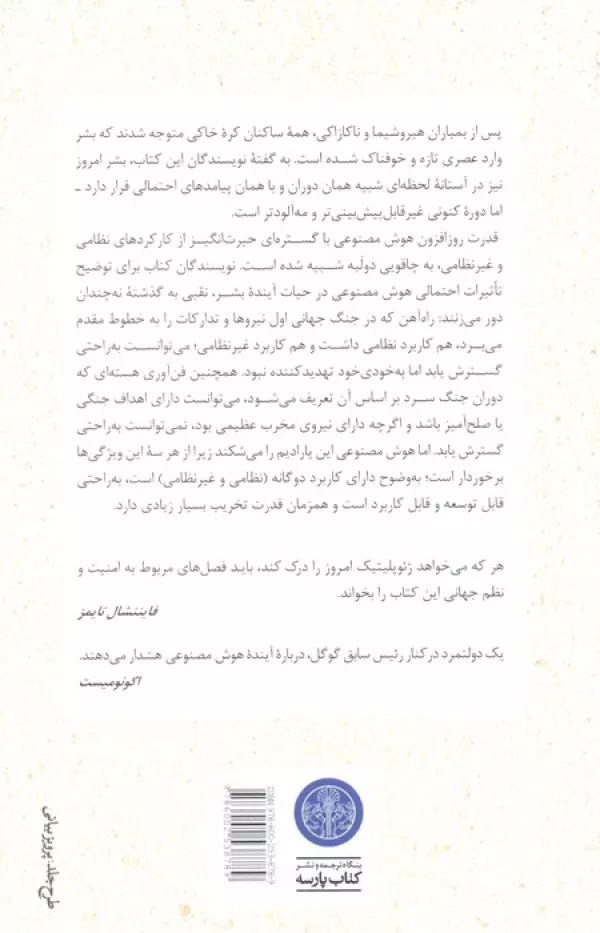 پس از بمباران هیروشیما و ناکازاکی، همهٔ ساکنان کرهٔ خاکی متوجه شدند که بشر
وارد عصری تازه و خوفناک شده است. به گفتهٔ نویسندگان این کتاب، بشر امروز
نیز در آستانهٔ لحظه‌ای شبیه همان دوران و با همان پیامدهای احتمالی قرار دارد ـ
اما دورهٔ کنونی غیرقابل‌پیش‌بینی‌تر و مه‌آلودتر است.
قدرت روزافزون هوش مصنوعی با گستره‌ای حیرت‌انگیز از کارکردهای نظامی
و غیرنظامی، به چاقویی دولَبه شبیه شده است. نویسندگان کتاب برای توضیح
تأثیرات احتمالی هوش مصنوعی در حیات آیندهٔ بشر، نقبی به گذشتهٔ نه‌چندان
دور می‌زنند: راه‌آهن که در جنگ جهانی اول نیروها و تدارکات را به خطوط مقدم
می‌برد، هم کاربرد نظامی داشت و هم کاربرد غیرنظامی؛ می‌توانست به‌راحتی
گسترش یابد اما به‌خودی‌خود تهدیدکننده نبود. همچنین فن‌آوری هسته‌ای که
دوران جنگ سرد بر اساس آن تعریف می‌شود، می‌توانست دارای اهداف جنگی
یا صلح‌آمیز باشد و اگرچه دارای نیروی مخرب عظیمی بود، نمی‌توانست به‌راحتی
گسترش یابد. اما هوش مصنوعی این پارادیم را می‌شکند زیرا از هر سهٔ این ویژگی‌ها
برخوردار است؛ به‌وضوح دارای کاربرد دوگانه (نظامی و غیرنظامی) است، به‌راحتی
قابل توسعه و قابل کاربرد است و همزمان قدرت تخریب بسیار زیادی دارد.
هر که می‌خواهد ژئوپلیتیک امروز را درک کند، باید فصل‌های مربوط به امنیت و
نظم جهانی این کتاب را بخواند.
فایننشال تایمز
یک دولتمرد در کنار رئیس سابق گوگل، دربارهٔ آیندهٔ هوش مصنوعی هشدار می‌دهند.
اکونومیست
طرح جلد: پرویز بیانی
ISBN 978-600-253-878-9
9786002538789
بنگاه ترجمه و نشر
کتاب پارسه